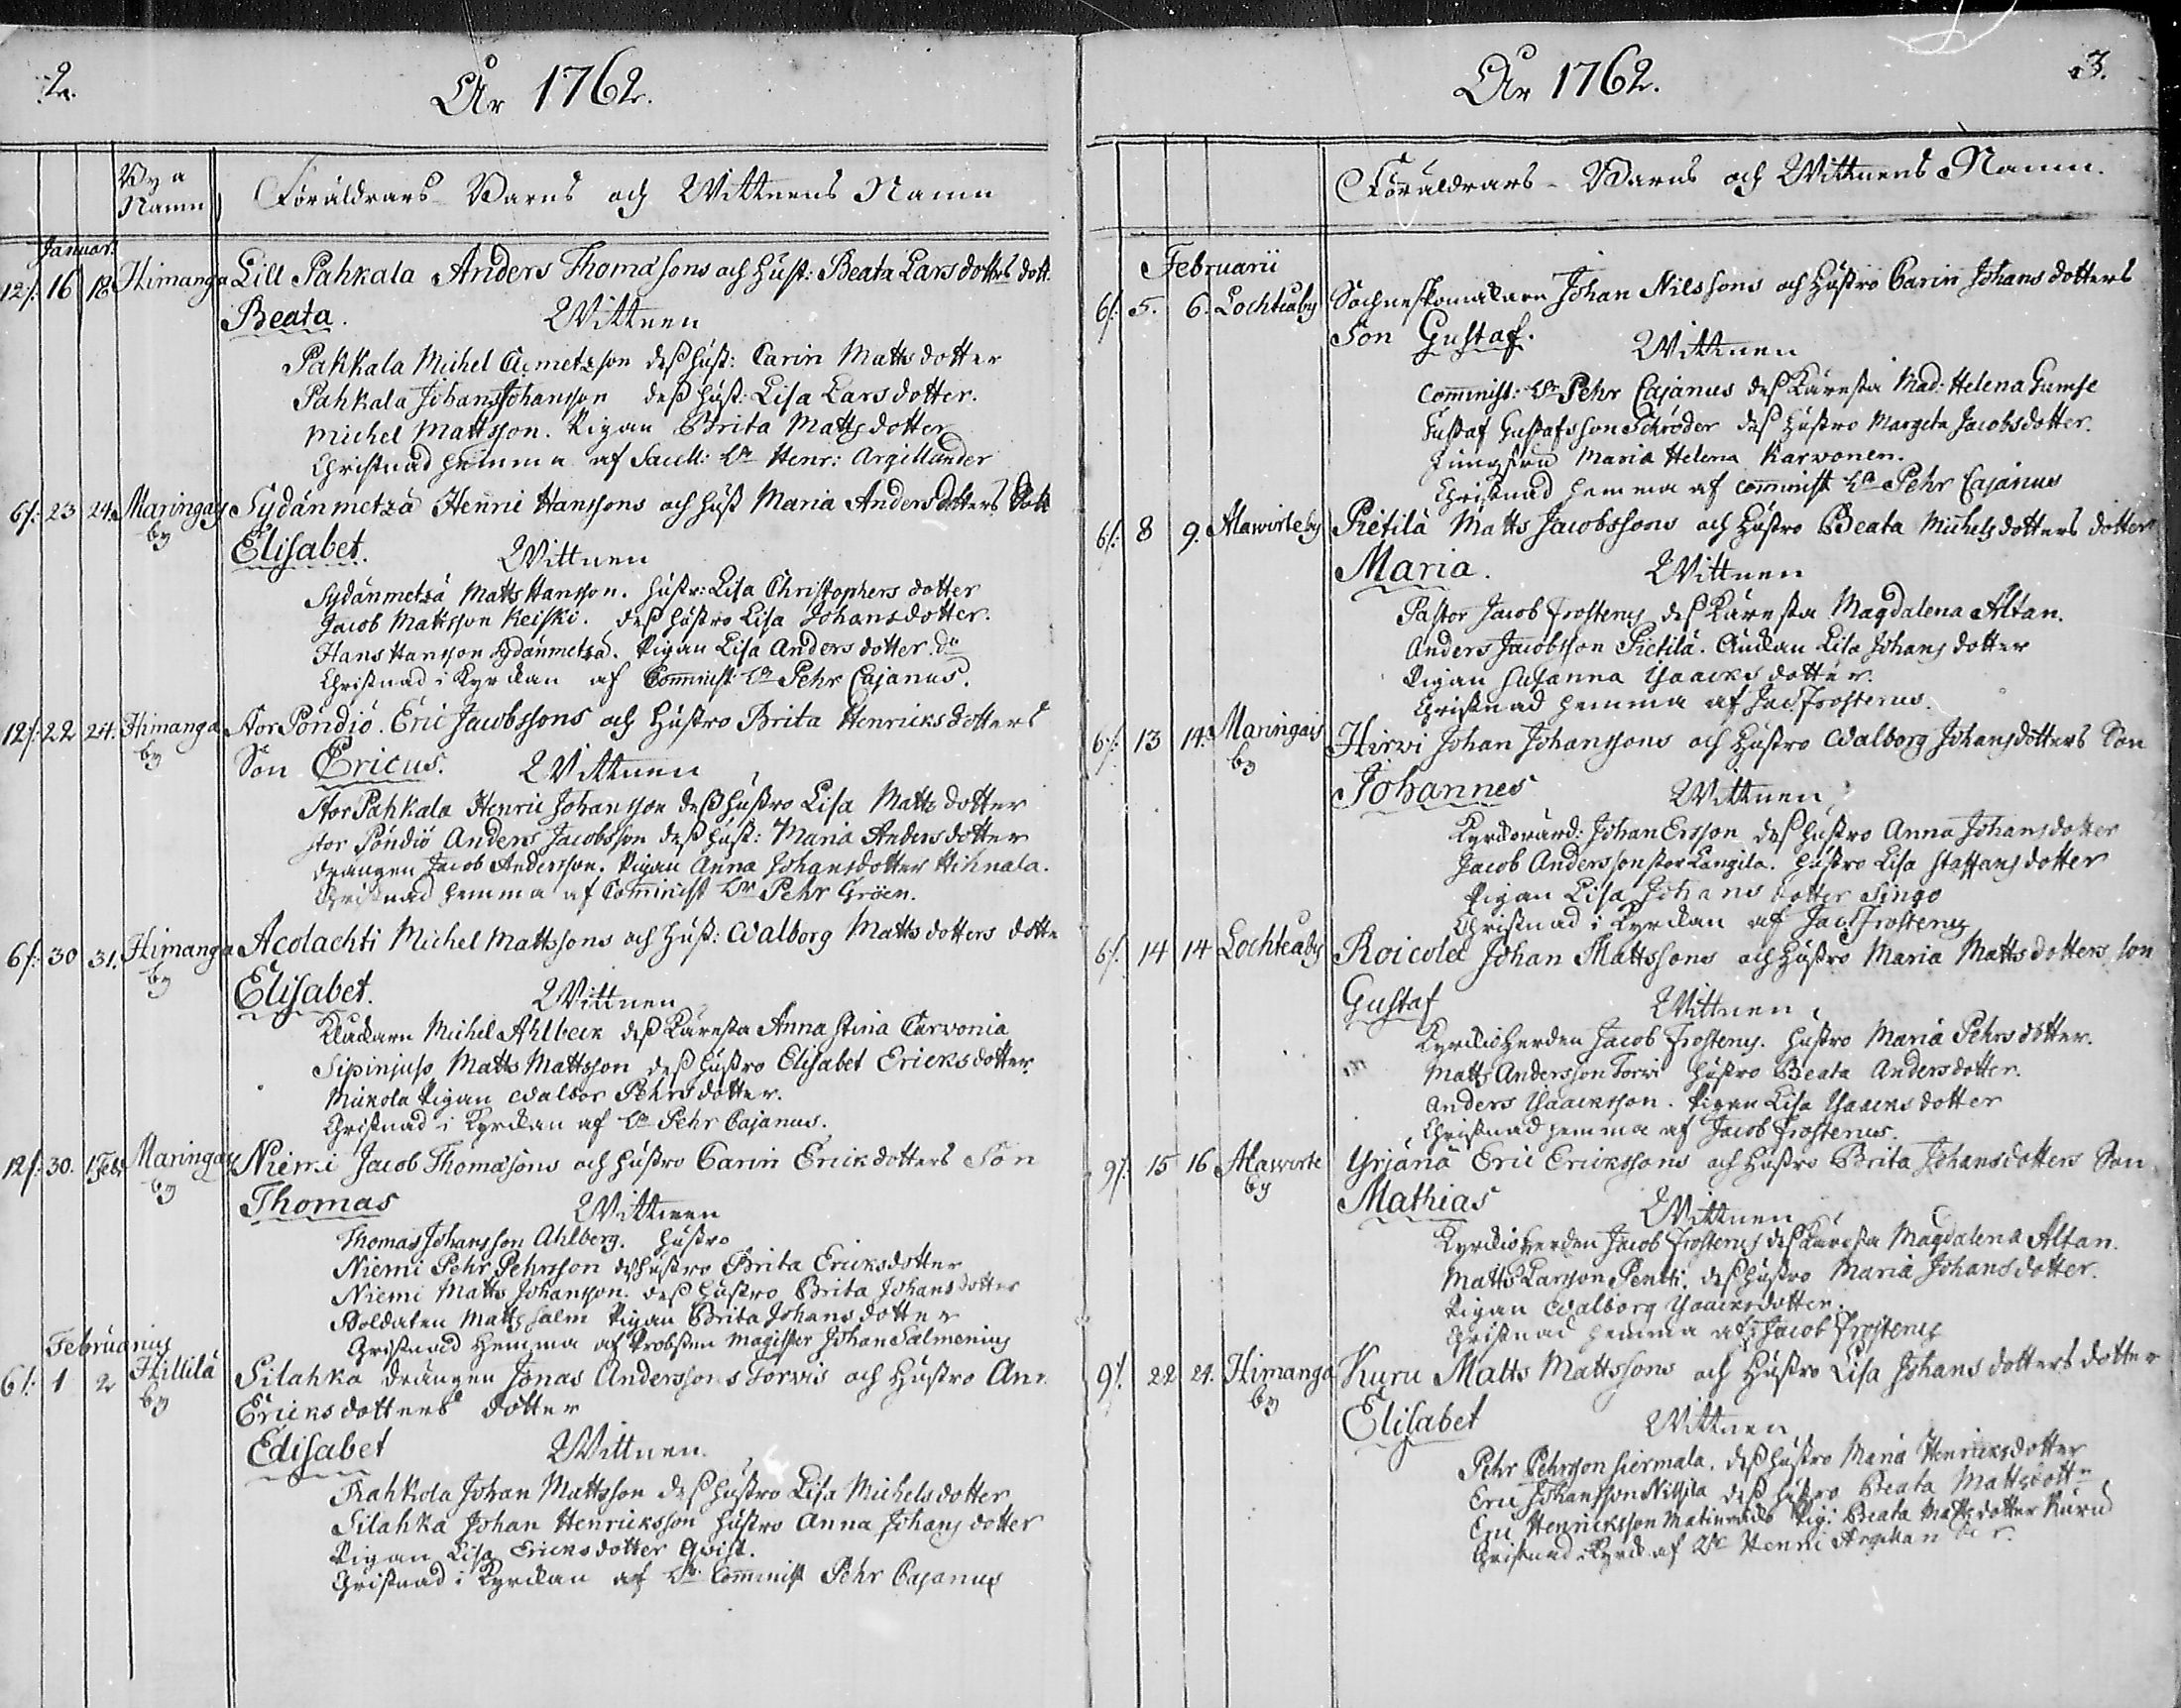 2.
År 1762.
Bya
Namn
Föräldrars Barns och Wittnens Namn
Januar:
12/: 16 18 Himanga Lill Pahkala Anders Thomæsons och Hust: Beata Larsdotters dott.
Beata. Wittnen
Pahkala Michel Clemetzson dess hust: Carin Mattsdotter
Pahkala Johan Johansson dess hust: Lisa Larsdotter.
Michel Mattsson. Pigan Brita Mattsdotter
Christnad hemma af Sacell: Hr Henr: Argillander
6/: 23 24. Maringais Sydänmetzä Henric Hanssons och hust Maria Andersdotters Dott
by
Elisabet. Wittnen
Sydänmetzä Matts Hansson. hustr: Lisa Christophersdotter
Jacob Mattsson Keiski. dess hustro Lisa Johansdotter.
Hans Hansson Sydänmetzä. Pigan Lisa Andersdotter. do
Christnad i Kyrckan af Comminist: Hr Pehr Cajanus.
12/: 22 24. Himanga Stor Pöndiö. Eric Jacobssons och Hustro Brita Henricksdotters
by
Son Ericus. Wittnen
Stor Pahkala Henric Johansson dess hustro Lisa Mattsdotter
stor Pöndiö Anders Jacobsson dess hust: Maria Andersdotter
drängen Jacob Andersson. Pigan Anna Johansdotter Hihnala.
Christnad hemma af Cominist Hr Pehr Gröen.
6/: 30 31. Himanga Acolachti Michel Mattssons och Hust: Walborg Mattsdotters dotte
by
Elisabet. Wittnen
Kläckarn Michel Ahlbeck dess Käresta Anna Stina Carvonia
Sipinjuso Matts Mattsson dess hustro Elisabet Ericksdotter.
Mickola Pigan Walbor Pehrsdotter.
Christnad i Kyrckan af Hr Pehr Cajanus.
12/: 30. 1.Febr Maringais Niemi Jacob Thomæsons och hustro Carin Ericksdotters Son
by
Thomas Wittnen
Thomas Johansson Ahlberg. hustro
Niemi Pehr Pehrsson dess hustro Brita Ericksdotter
Niemi Matts Johansson. dess hustro Brita Johansdotter
Soldaten Matts Salm Pigan Brita Johansdotter
Christnad Hemma af Probsten Magister Johan Salmenius
Februarius
6/: 1 2 Hillilä Silahka drängen Jonas Anderssons Torvis och Hustro Ann.
by
Ericksdotters dotter
Elisabet Wittnen.
Trahkola Johan Mattsson dess hustro Lisa Michelsdotter
Silahka Johan Henricksson hustro Anna Johansdotter
Pigan Lisa Ericksdotter Qvist.
Christnad i Kyrckan af Hr Comminist Pehr Cajanus
År 1762.
3.
Föräldrars Barns och Wittnens Namn.
Februarii
6/: 5. 6. Lochteåby Johan Nilssons och Hustro Carin Johansdotters
Son Gustaf. Wittnen
Comminist: Hr Pehr Cajanus dess Käresta Mad. Helena Gumse
Gustaf Gustafsson Schröder dess Hustro Margeta Jacobsdotter.
Jungfru Maria Helena Karvonen.
Christnad hemma af Comminist Hr Pehr Cajanus
6/: 8 9. Alawirteby Pietilä Matts Jacobssons och Hustro Beata Michelsdotters dotter
Maria. Wittnen
Pastor Jacob Frosterus dess Käresta Magdalena Altan.
Anders Jacobsson Pietilä. Änckan Lisa Johansdotter
Pigan Susanna Ysaacksdotter.
Christnad hemma af Jac Frosterus.
6/: 13 14. Maringais Hirvi Johan Johanssons och Hustro Walborg Johansdotters Son
by
Johannes Wittnen
Kyrckovärd: Johan Ersson dess hustro Anna Johansdotter
Jacob Andersson stor Långila. hustro Lisa Staffansdotter
Pigan Lisa Johansdotter Singo
Christnad i Kyrckan af Jac: Frosterus
6/: 14 14 Lochteåby Roicola Johan Mattssons och Hustro Maria Mattsdotters son
Gustaf Wittnen
Kyrckioherden Jacob Frosterus. hustro Maria Pehrsdotter.
Matts Andersson Torvi hustro Beata Andersdotter.
Anders Ysaacksson. Pigan Lisa Ysaacksdotter
Christnad hemma af Jacob Frosterus.
9/: 15 16 Alawirte Yrjänä Eric Erickssons och Hustro Brita Johansdotters Son
by
Mathias Wittnen
Kyrckioherden Jacob Frosterus dess Käresta Magdalena Altan.
Matts Larsson Pentti. dess hustro Maria Johansdotter.
Pigan Walborg Ysaacksdotter.
Christnad hemma af Jacob Frosterus
9/: 22 24. Himanga Kuru Matts Mattssons och Hustro Lisa Johansdotters dotter
by
Elisabet Wittnen
Pehr Pehrsson Siermala. dess hustro Maria Henricksdotter
Eric Johansson Nissila dess hustro Beata Mattsdotter
Eric Henricksson Pig: Beata Mattsdotter Kuru
Christnad i Kyrck af Hr Henric Argillander.